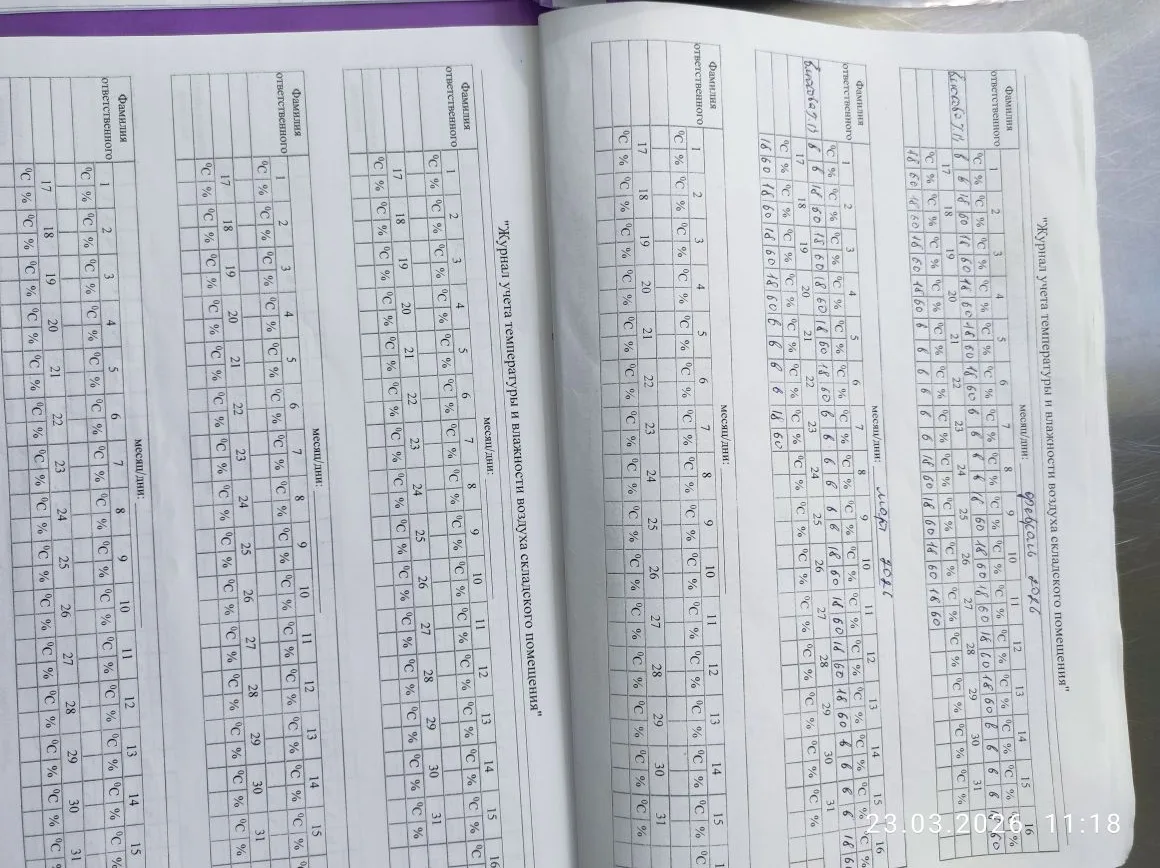 "Журнал учета температуры и влажности воздуха складского помещения"
месяц/дни: февраль 2026
Фамилия ответственного 1 2 3 4 5 6 7 8 9 10 11 12 13 14 15 16
°C % °C % °C % °C % °C % °C % °C % °C % °C % °C % °C % °C % °C % °C % °C % °C %
в в 18 60 18 60 18 60 18 60 18 60 в в в в 18 60 18 60 18 60 18 60 18 60 в в в в 18 60
17 18 19 20 21 22 23 24 25 26 27 28 29 30 31
°C % °C % °C % °C % °C % °C % °C % °C % °C % °C % °C % °C % °C % °C % °C %
18 60 18 60 18 60 18 60 в в в в в в 18 60 18 60 18 60 18 60
месяц/дни: март 2026
Фамилия ответственного 1 2 3 4 5 6 7 8 9 10 11 12 13 14 15 16
°C % °C % °C % °C % °C % °C % °C % °C % °C % °C % °C % °C % °C % °C % °C % °C %
в в 18 60 18 60 18 60 18 60 18 60 в в в в в в 18 60 18 60 18 60 18 60 в в в в 18 60
17 18 19 20 21 22 23 24 25 26 27 28 29 30 31
°C % °C % °C % °C % °C % °C % °C % °C % °C % °C % °C % °C % °C % °C % °C %
18 60 18 60 18 60 18 60 в в в в 18 60
месяц/дни:
Фамилия ответственного 1 2 3 4 5 6 7 8 9 10 11 12 13 14 15
°C % °C % °C % °C % °C % °C % °C % °C % °C % °C % °C % °C % °C % °C % °C %
17 18 19 20 21 22 23 24 25 26 27 28 29 30 31
°C % °C % °C % °C % °C % °C % °C % °C % °C % °C % °C % °C % °C % °C % °C %
"Журнал учета температуры и влажности воздуха складского помещения"
месяц/дни:
Фамилия ответственного 1 2 3 4 5 6 7 8 9 10 11 12 13 14 15 16
°C % °C % °C % °C % °C % °C % °C % °C % °C % °C % °C % °C % °C % °C % °C %
17 18 19 20 21 22 23 24 25 26 27 28 29 30 31
°C % °C % °C % °C % °C % °C % °C % °C % °C % °C % °C % °C % °C % °C % °C %
месяц/дни:
Фамилия ответственного 1 2 3 4 5 6 7 8 9 10 11 12 13 14 15
°C % °C % °C % °C % °C % °C % °C % °C % °C % °C % °C % °C % °C % °C % °C %
17 18 19 20 21 22 23 24 25 26 27 28 29 30 31
°C % °C % °C % °C % °C % °C % °C % °C % °C % °C % °C % °C % °C % °C % °C %
месяц/дни:
Фамилия ответственного 1 2 3 4 5 6 7 8 9 10 11 12 13 14 15
°C % °C % °C % °C % °C % °C % °C % °C % °C % °C % °C % °C % °C % °C % °C %
17 18 19 20 21 22 23 24 25 26 27 28 29 30 31
°C % °C % °C % °C % °C % °C % °C % °C % °C % °C % °C % °C % °C % °C %
23.03.2026 11:18